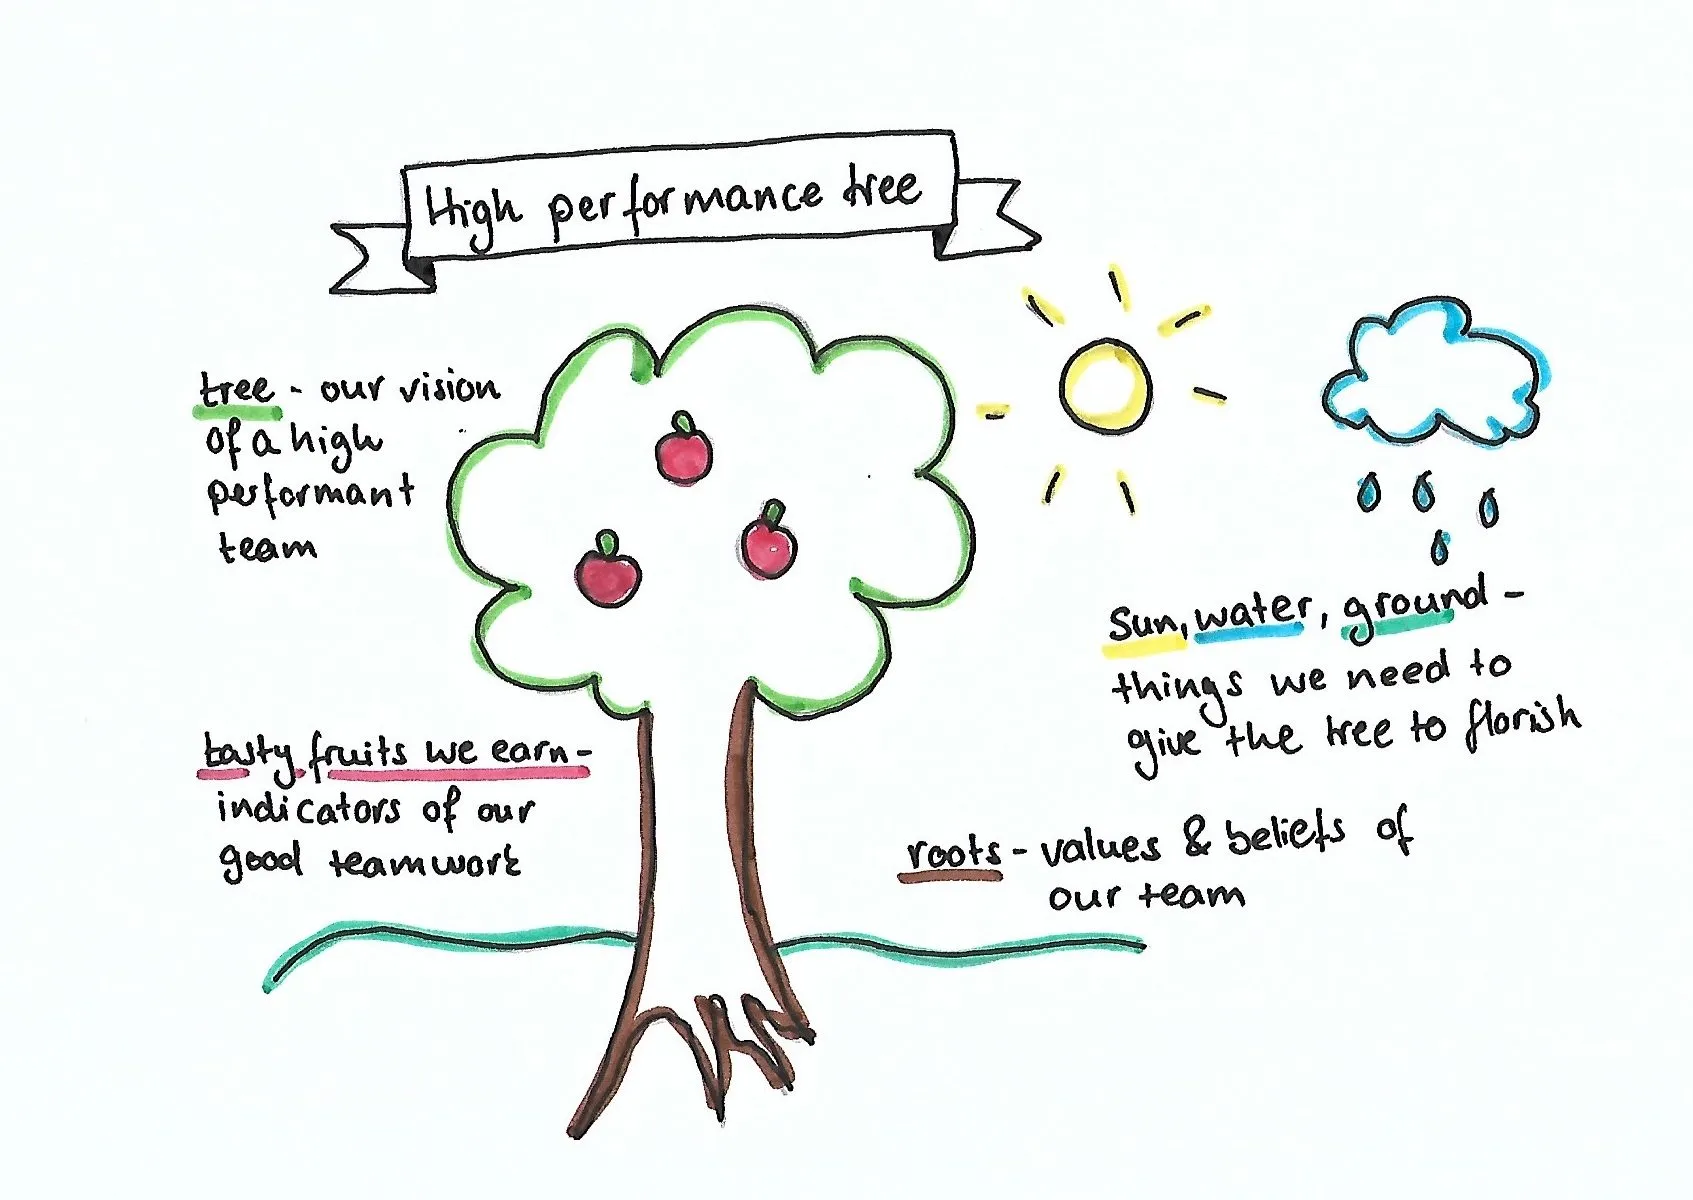 High performance tree
tree - our vision
of a high
performant
team
Sun, water, ground -
things we need to
give the tree to florish
tasty fruits we earn -
indicators of our
good teamwork
roots - values & beliefs of
our team